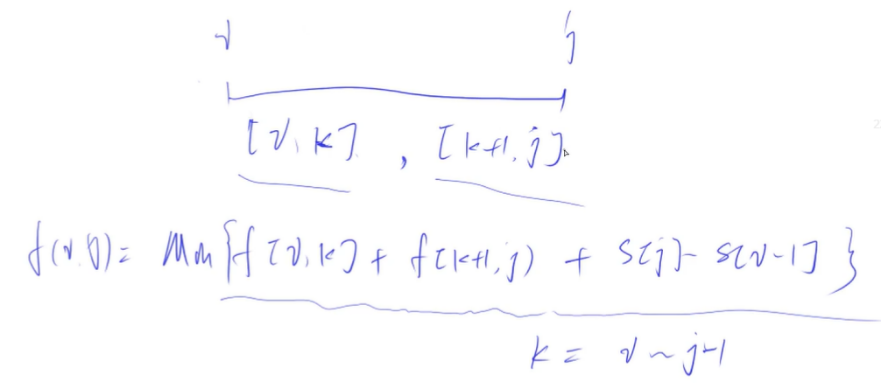 i j
[i, k] , [k+1, j]
f(i, j) = min{f[i, k] + f[k+1, j) + S[j] - S[i-1] }
k = i ~ j-1